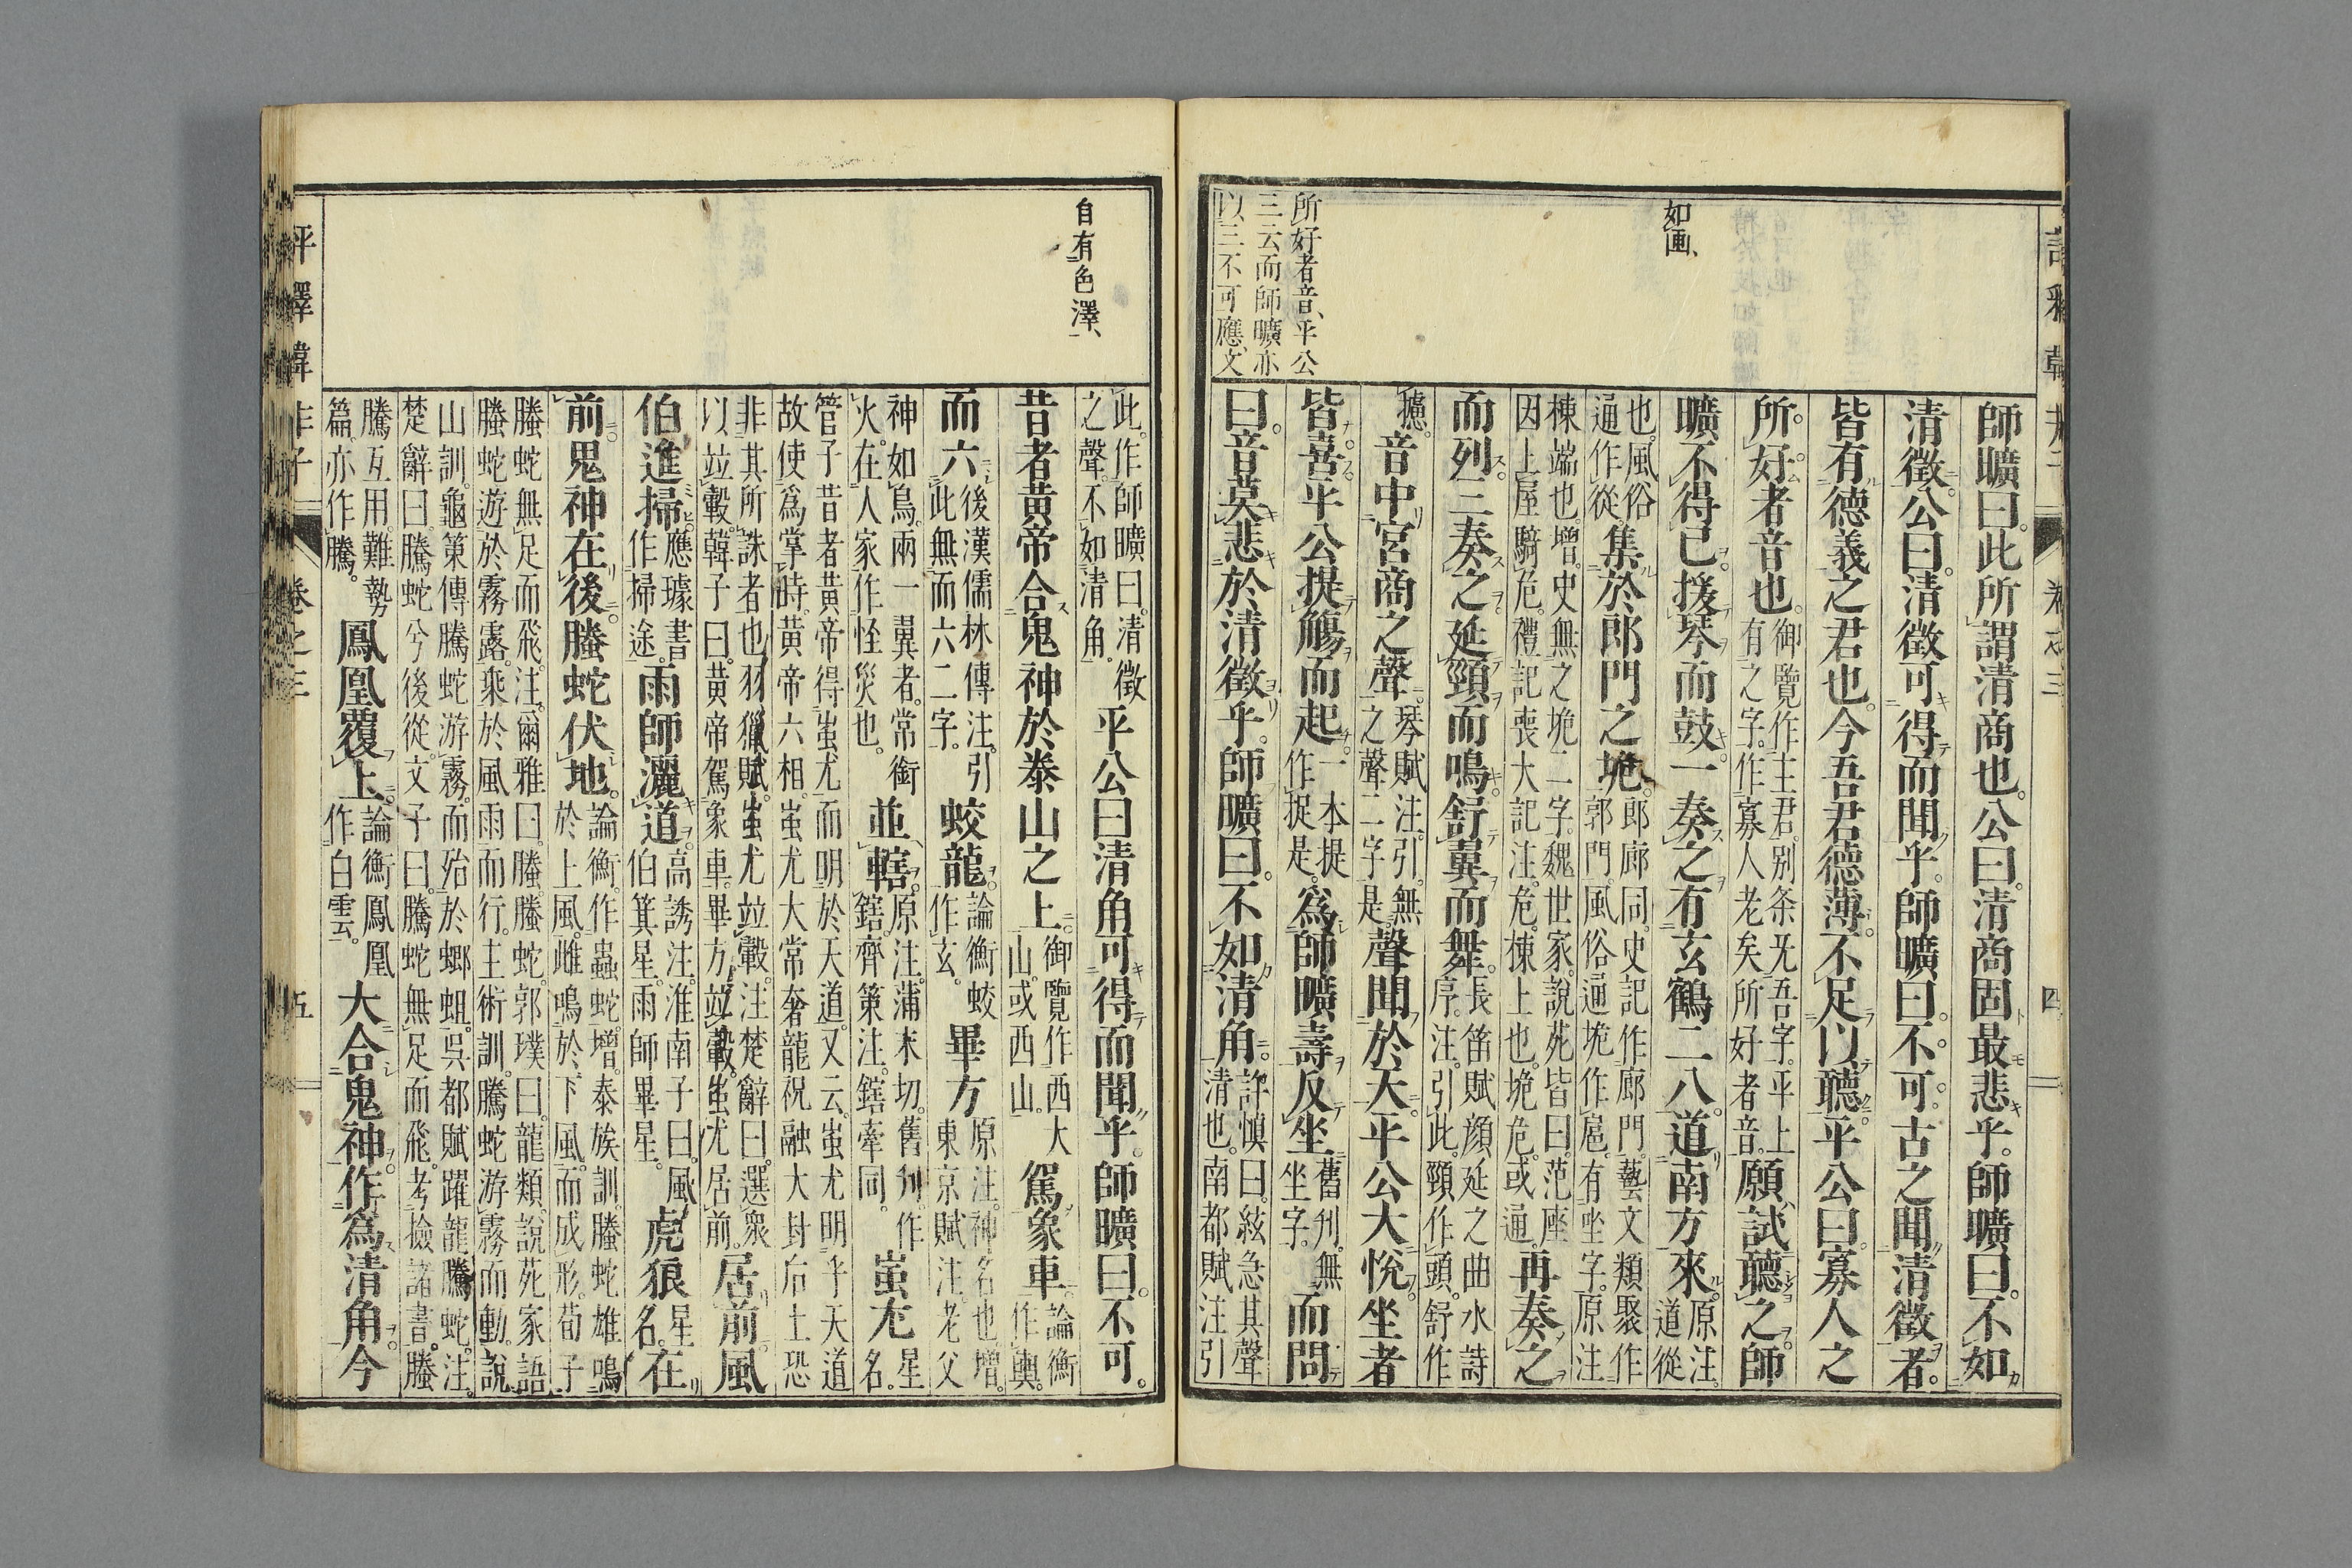 師曠曰。此所謂清商也。公曰。清商固最悲乎。師曠曰。不如
清徵。公曰。清徵可得而聞乎。師曠曰。不可。古之聞清徵者。
皆有德義之君也。今吾君德薄。不足以聽。平公曰。寡人之
所好者音也。御覽作主君。別条无吾字。平上有之字。作寡人老矣所好者音。願試聽之。師
曠不得已。援琴而鼓。一奏之。有玄鶴二八。道南方來。原注。道從
也。風俗通作從。集於郎門之垝。郎廊同。史記作廊門。藝文類聚作郭門。風俗通垝作扈。有坐字。原注
棟端也。增。史無之垝二字。魏世家。說苑皆曰。范座因上屋騎危。禮記喪大記注。危。棟上也。垝危。或通。再奏之
而列。三奏之。延頸而鳴。舒翼而舞。長笛賦顏延之曲水詩序。注。引此。頸作頭。舒作
攄。音中宮商之聲。琴賦注。引。無之聲二字是。聲聞於天。平公大悅。坐者
皆喜。平公提觴而起。一本提作捉是。為師曠壽。反坐。舊刊。無坐字。而問
曰。音莫悲於清徵乎。師曠曰。不如清角。許慎曰。絃急其聲清也。南都賦注引
所好者音、平公
三云而師曠亦
以三不可應、文
如画、
評釋韓非子
卷之三
四
此。作師曠曰。清徵之聲。不如清角。平公曰。清角可得而聞乎。師曠曰。不可。
昔者黃帝合鬼神於泰山之上。御覽作西大山。或西山。駕象車。論衡作輿。
而六後漢儒林傳注。引此無而六二字。蛟龍。論衡蛟作玄。畢方原注。神名也。增。東京賦注。老父
神如鳥。兩一翼者。常銜火。在人家作怪災也。並轄。原注。蒲末切。舊刊作鎋。齊策注。鎋牽同。蚩尤星名。
管子昔者黃帝得蚩尤而明於天道。又云。蚩尤明乎天道故使為掌時。黃帝六相。蚩尤大常奢龍祝融大封后土恐
非其所誅者也。羽獵賦。蚩尤竝轂。注。楚辭曰。選衆以竝轂。韓子曰。黃帝駕象車。畢方竝轂。蚩尤居前。居前。風
伯進掃。應璩書作掃途。雨師灑道。高誘注。淮南子曰。風伯箕星。雨師畢星。虎狼星名。在
前。鬼神在後。螣蛇伏地。論衡。作蟲蛇。增。泰族訓。螣蛇雄鳴於上風。雌鳴於下風。而成形。荀子
螣蛇無足而飛。注。爾雅曰。螣螣蛇。郭璞曰。龍類。說苑家語螣蛇遊於霧露。乘於風雨而行。主術訓。騰蛇游霧而動。說
山訓。龜策傳騰蛇游霧。而殆於螂蛆。吳都賦躍龍騰蛇。注。楚辭曰。騰蛇兮後從。文子曰。騰蛇無足而飛。考撿諸書。螣
騰互用。難勢篇。亦作騰。鳳凰覆上。論衡鳳凰作白雲。大合鬼神。作為清角。今
自有色澤、
評釋韓非子
卷之三
五